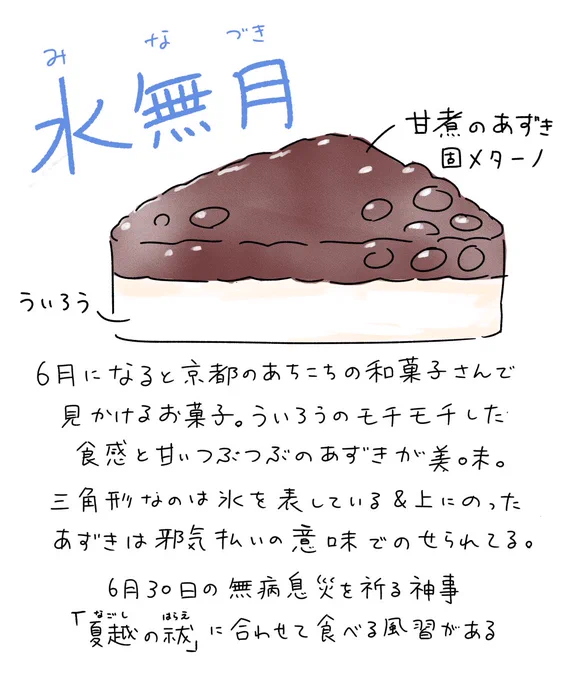 み な づき
水無月
甘煮のあずき
固メターノ
ういろう
6月になると京都のあちこちの和菓子さんで
見かけるお菓子。ういろうのモチモチした
食感と甘いつぶつぶのあずきが美味。
三角形なのは氷を表している&上にのった
あずきは邪気払いの意味でのせられてる。
6月30日の無病息災を祈る神事
なごし はらえ
「夏越の祓」に合わせて食べる風習がある